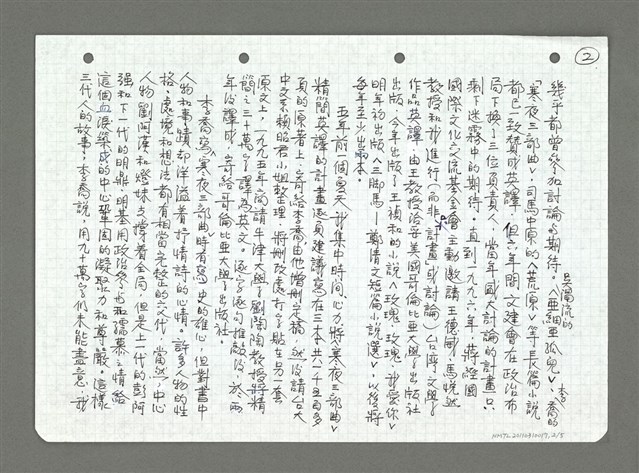 ②
幾乎都曾參加討論與期待。吳濁流的《亞細亞孤兒》、李喬的
《寒夜三部曲》、司馬中原的《荒原》等長篇小說
都已一致贊成英譯，但六年間文建會在政治布
局下換了三位負責人，當年國大討論的計畫只
剩下迷霧中的期待。直到一九九六年，蔣經國
國際文化交流基金會主動邀請王德威、馬悅然
教授和我進行（而非計畫或討論）台灣文學
作品英譯，由王教授洽妥美國哥倫比亞大學出版社
出版，今年出版了王禎和的小說《玫瑰、玫瑰、我愛你》
明年初出版《三脚馬—鄭清文短篇小說選》，以後將
每年至少出兩本。
五年前一個夏天，我集中時間、心力將寒夜三部曲
精簡英譯的計畫逐頁建議寫在三本共一千五百多
頁的原著上，寄給李喬，由他增刪定稿，然後請台大
中文系賴昭君小姐整理，將刪改處打字貼在另一套
原文上，一九九五年商請牛津大學劉陶陶教授將精
簡之三十萬字譯為英文。逐字逐句推敲後，於兩
年後譯成，寄給哥倫比亞大學出版社。
李喬寫《寒夜三部曲》時有寫史的雄心，但對書中
人物和事蹟却洋溢着抒情詩的心情。許多人物的性
格、處境和想法都有相當完整的交代，當然，中心
人物劉阿漢和燈妹支撐着全局，但是上一代的彭阿
強和下一代的明鼎、明基用政治參與和孺慕之情給
這個血淚築成的中心鞏固的凝聚力和尊嚴。這樣
三代人的故事，李喬說，用九十萬字仍未能盡意，我
NMTL20120310197,2/5